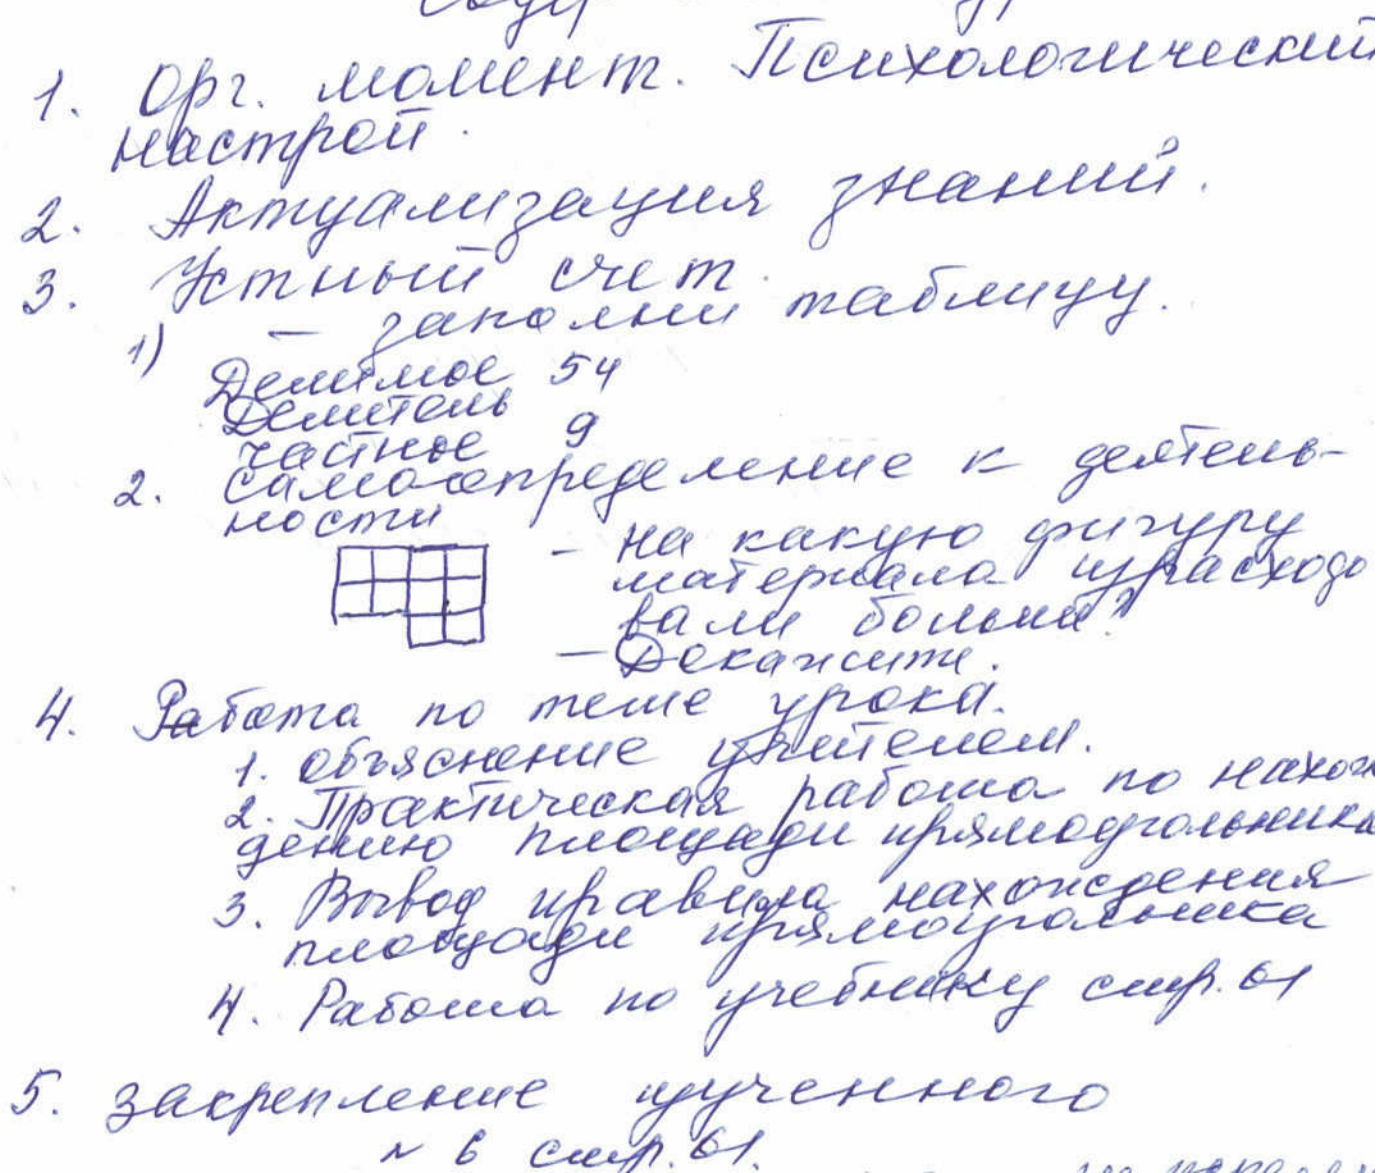 1. Орг. момент. Психологический
настрой.
2. Актуализация знаний.
3. Устный счет.
1) – заполни таблицу.
Делимое 54
Делитель
частное 9
2. самоопределение к деятель-
ности
– на какую фигуру
материала израсходо
вали больше?
– Докажите.
4. Работа по теме урока.
1. Объяснение учителем.
2. Практическая работа по нахож
дению площади прямоугольника
3. Вывод правила нахождения
площади прямоугольника
4. Работа по учебнику стр. 61
5. Закрепление изученного
№ 6 стр. 61.